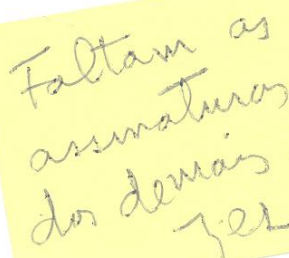 Faltam as
assinaturas
dos demais